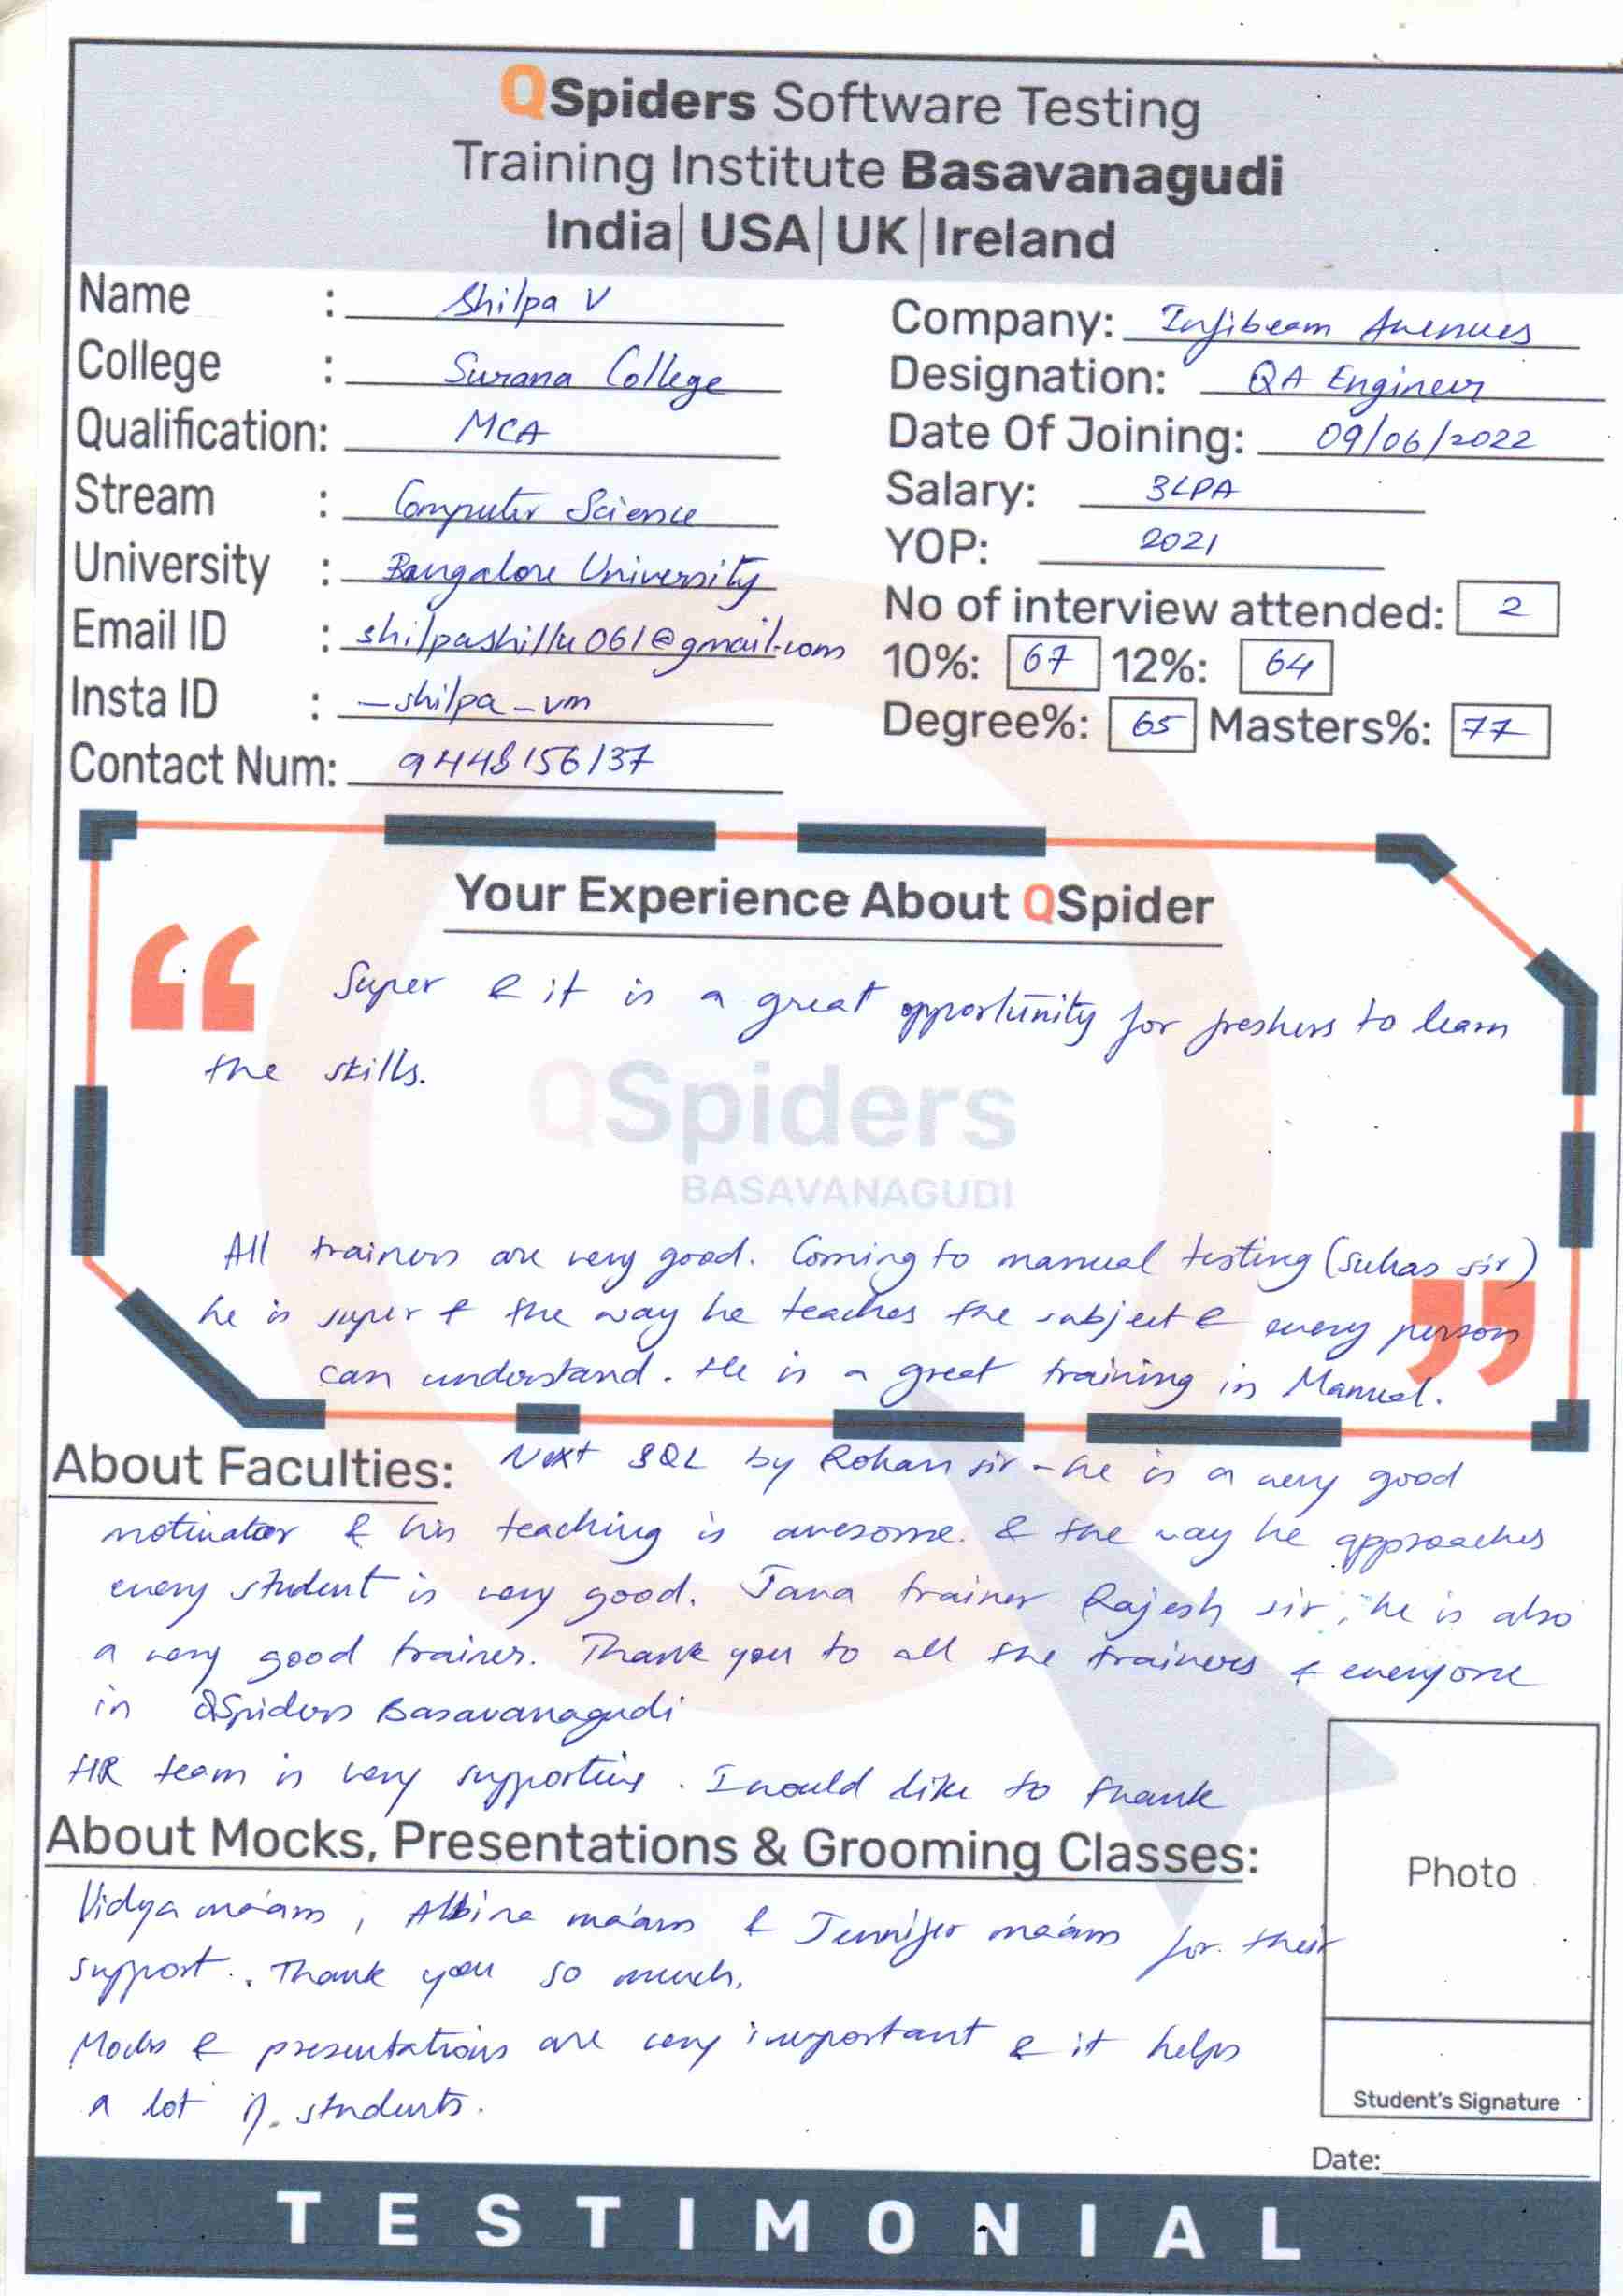 QSpiders Software Testing
Training Institute Basavanagudi
India| USA| UK |Ireland
Name : Shilpa V
College : Surana College
Qualification: MCA
Stream : Computer Science
University : Bangalore University
Email ID : shilpashillu061@gmail.com
Insta ID : _shilpa_vm
Contact Num: 9448156137
Company: Infibeam Avenues
Designation: QA Engineer
Date Of Joining: 09/06/2022
Salary: 3LPA
YOP: 2021
No of interview attended: 2
10%: 67 12%: 64
Degree%: 65 Masters%: 77
Your Experience About QSpider
Super & it is a great opportunity for freshers to learn
the skills.
QSpiders
BASAVANAGUDI
All trainers are very good. Coming to manual testing (Suhas sir)
he is super & the way he teaches the subject & every person
can understand. He is a great training in Manual.
About Faculties: Next SQL by Rohan sir - he is a very good
motivator & his teaching is awesome. & the way he approaches
every student is very good. Java trainer Rajesh sir, he is also
a very good trainer. Thank you to all the trainers & everyone
in QSpiders Basavanagudi
HR team is very supportive. I would like to thank
About Mocks, Presentations & Grooming Classes:
Vidya ma'am, Albina ma'am & Jennifer ma'am for their
support. Thank you so much.
Mocks & presentations are very important & it helps
a lot of students.
Photo
Student's Signature
Date:
TESTIMONIAL